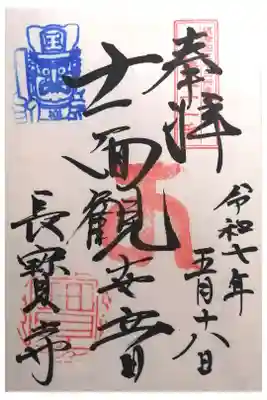 奉拝
令和七年
五月十八日
十一面觀世音
長寶寺